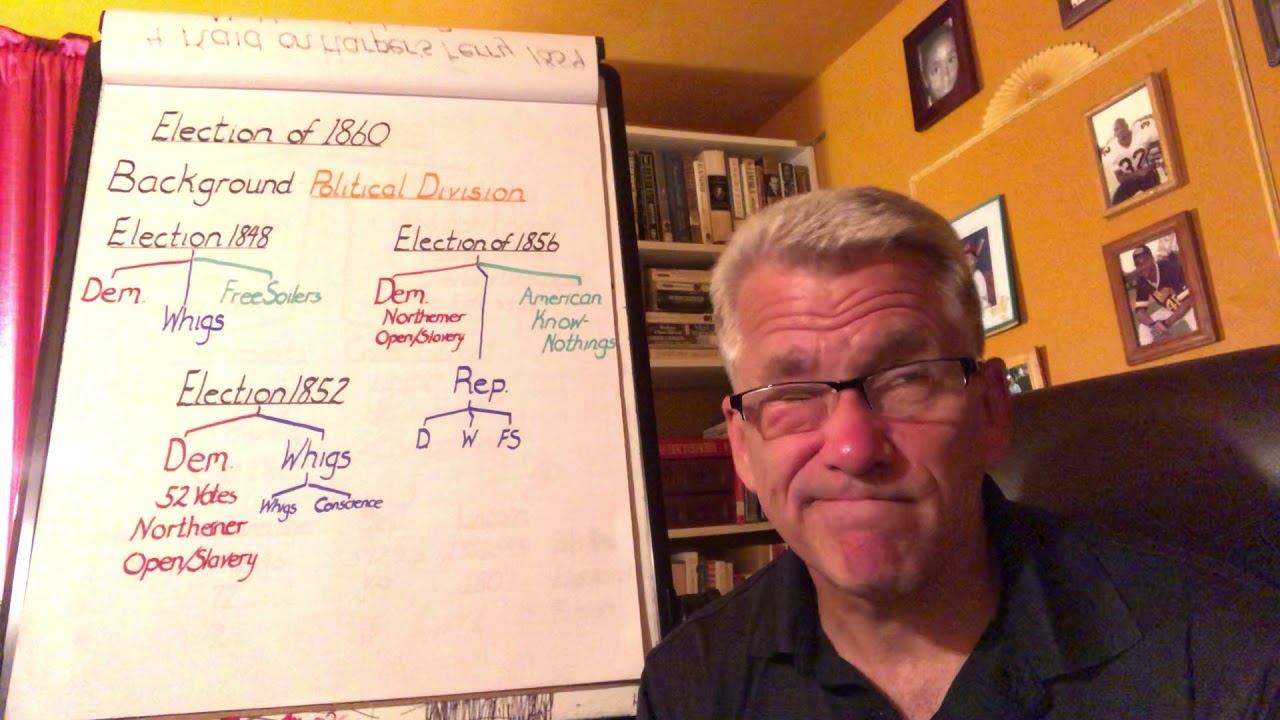 4 Raid on Harper's Ferry 1859
Election of 1860
Background Political Division
Election 1848
Dem.
Whigs
Free Soilers
Election of 1856
Dem.
Northerner
Open/Slavery
American
Know-
Nothings
Rep.
D W FS
Election 1852
Dem.
52 Votes
Northener
Open/Slavery
Whigs
Whigs Conscience
32